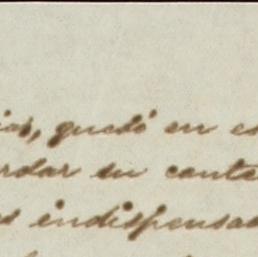 ios, quedó en es
rdar su conte
s indispensab